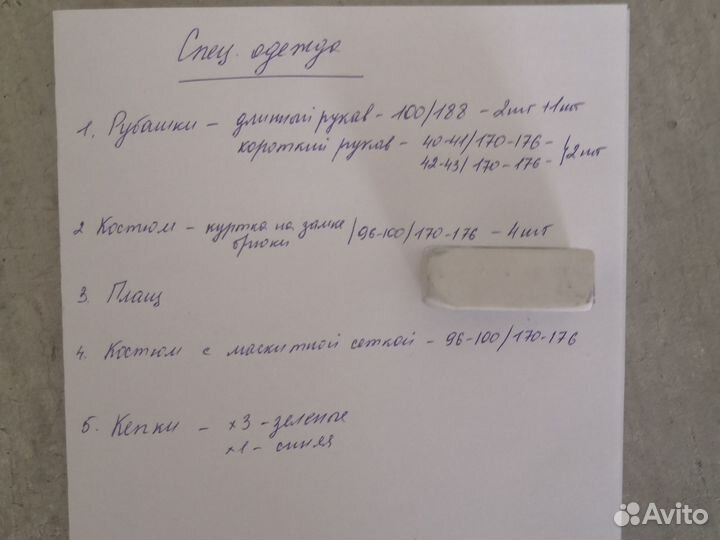 Спец. одежда
1. Рубашки – длинный рукав – 100/188 – 2шт +1шт
короткий рукав – 40-41/170-176 –
42-43/170-176 – 2шт
2 Костюм – куртка на замке /96-100/170-176 – 4шт
брюки
3. Плащ
4. Костюм с маскитной сеткой – 96-100/170-176
5. Кепки – х3 – зеленые
х1 – синяя
Avito